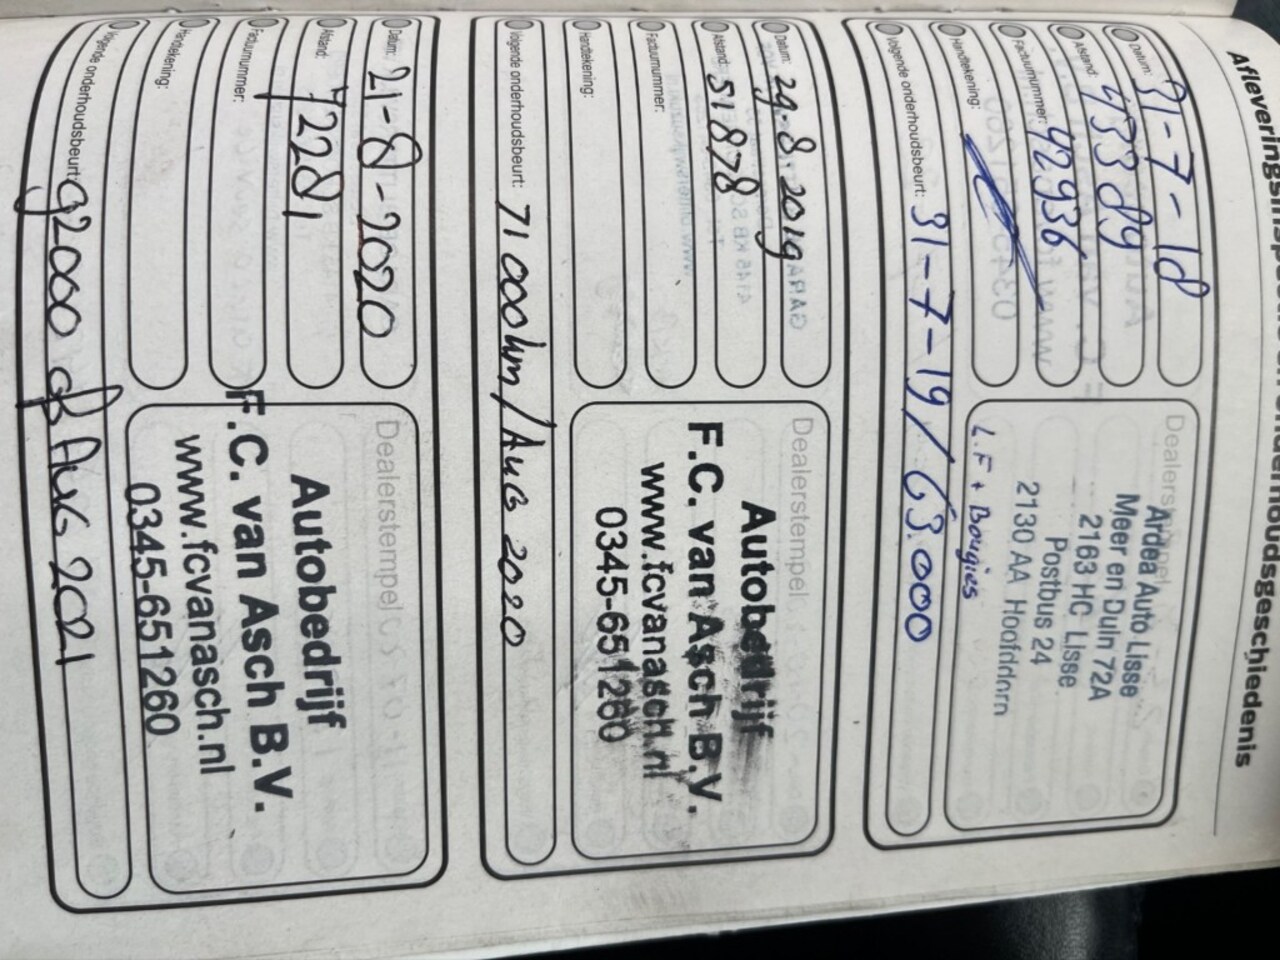 Afleveringsinspectie en onderhoudsgeschiedenis
Datum: 31-7-18
Afstand: 43389
Factuurnummer: 42936
Handtekening:
Dealerstempel
Ardea Auto Lisse
Meer en Duin 72A
2163 HC Lisse
Postbus 24
2130 AA Hoofddorp
L.F + Bougies
Volgende onderhoudsbeurt: 31-7-19 / 63.000
Datum: 29-8-2019
Afstand: 51878
Factuurnummer:
Handtekening:
Dealerstempel
Autobedrijf
F.C. van Asch B.V.
www.fcvanasch.nl
0345-651260
Volgende onderhoudsbeurt: 71000km/Aug 2020
Datum: 21-8-2020
Afstand: 72281
Factuurnummer:
Handtekening:
Dealerstempel
Autobedrijf
F.C. van Asch B.V.
www.fcvanasch.nl
0345-651260
Volgende onderhoudsbeurt: 92000 of Aug 2021